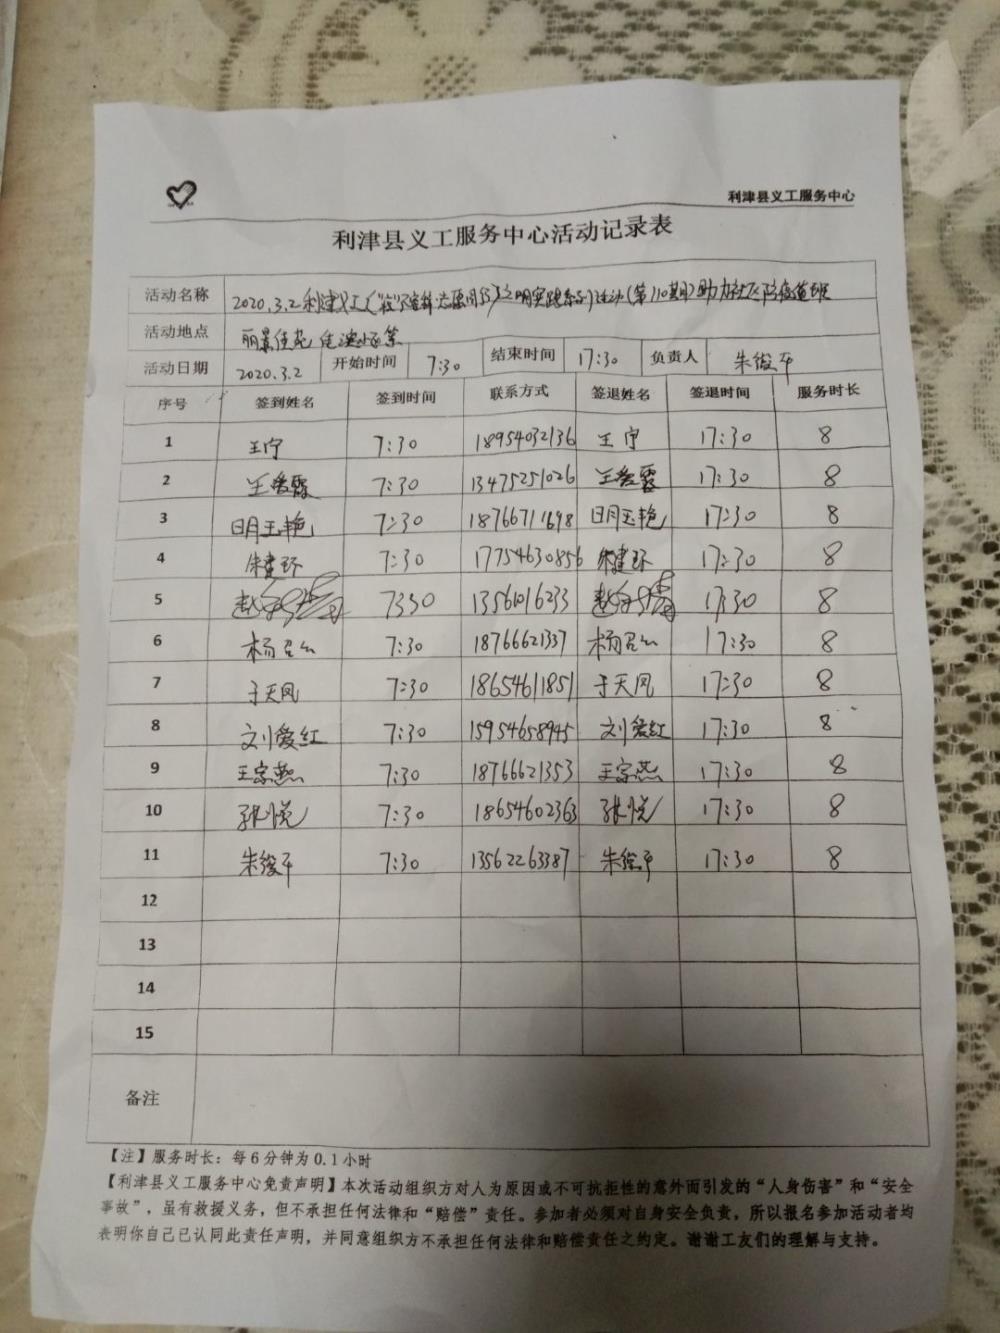 利津县义工服务中心
利津县义工服务中心活动记录表
活动名称 2020.3.2利津义工 志愿同行 文明实践系列活动(第110期)助力社区防疫值班
活动地点 丽景佳苑
活动日期 2020.3.2 开始时间 7:30 结束时间 17:30 负责人 朱俊平
序号 签到姓名 签到时间 联系方式 签退姓名 签退时间 服务时长
1 王宁 7:30 18954032136 王宁 17:30 8
2 王爱霞 7:30 13475251026 王爱霞 17:30 8
3 明玉艳 7:30 18766711698 明玉艳 17:30 8
4 朱建环 7:30 17754630856 朱建环 17:30 8
5 赵 7:30 13561016233 赵 17:30 8
6 杨 7:30 18766621337 杨 17:30 8
7 于天凤 7:30 18654611851 于天凤 17:30 8
8 刘爱红 7:30 15954658945 刘爱红 17:30 8
9 王宗燕 7:30 18766621353 王宗燕 17:30 8
10 张悦 7:30 18654602363 张悦 17:30 8
11 朱俊平 7:30 13562263387 朱俊平 17:30 8
12
13
14
15
备注
【注】服务时长:每6分钟为0.1小时
【利津县义工服务中心免责声明】本次活动组织方对人为原因或不可抗拒性的意外而引发的“人身伤害”和“安全
事故”,虽有救援义务,但不承担任何法律和“赔偿”责任。参加者必须对自身安全负责,所以报名参加活动者均
表明你自己已认同此责任声明,并同意组织方不承担任何法律和赔偿责任之约定。谢谢工友们的理解与支持。